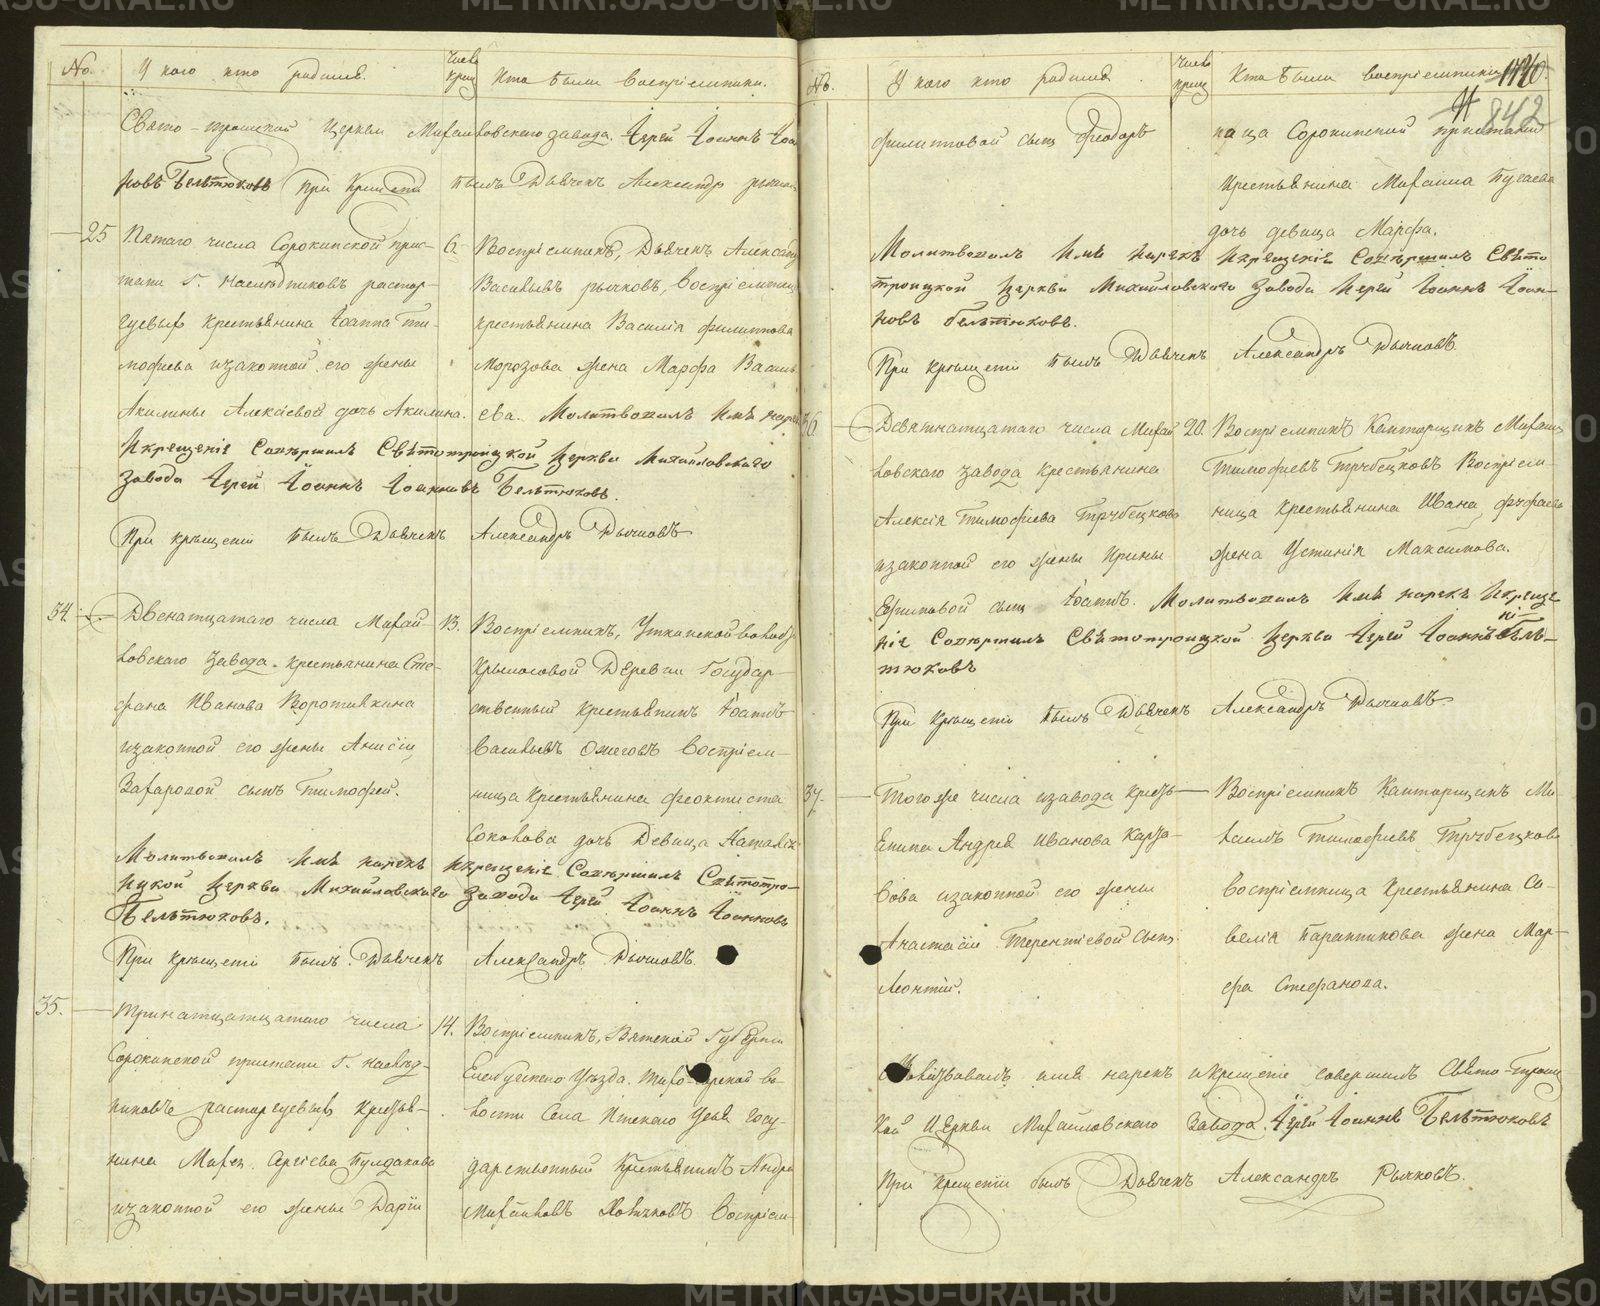 No.
У кого кто родился.
число крещ
Кто были воспрiемники.
Свято-троицкой Церкви Михайловскаго завода. Iерей Iоаннъ Iоан
новъ Бельтюковъ При Крещенiи былъ Дьячекъ Александръ рычков
25
Пятаго числа Сорокинской прис-
тани Г. Наслѣдниковъ растор-
гуевыхъ крестьянина Iоанна Ти-
мофеева изаконной его жены
Акилины Алексiевой дочь Акилина.
6.
Воспрiемникъ, Дьячекъ Александръ
Васильевъ рычковъ, воспрiемница
крестьянина Василiя филиппова
Морозова жена Марфа Василь
ева. Молитвовалъ Имя нарекъ
Икрещенiе Совершилъ Свѣтотроицкой Церкви Михайловскаго
Завода Iерей Iоаннъ Iоанновъ Бельтюковъ.
При крещенiи былъ Дьячекъ Александръ Рычковъ
34.
Двенатцатаго числа Михай-
ловскаго завода. крестьянина Сте-
фана Иванова Воротилкина
изаконной его жены Анисiи
Захаровой сынъ Тимофей.
13.
Воспрiемникъ, Уткинской волости
Крылосовой Деревни Государ-
ственный крестьянинъ Iоаннъ
васильевъ Ожеговъ воспрiем-
ница крестьянина феоктиста
Соколова дочь Девица Наталiя
Молитвовалъ Имя нарекъ Икрещенiе Совершилъ Свѣтотро-
ицкой Церкви Михайловскаго Завода Iерей Iоаннъ Iоанновъ
Бельтюковъ.
При крещенiи былъ Дьячекъ Александръ Рычковъ.
35.
Тринатцатцатаго числа
Сорокинской пристани Г. наслѣд-
никовъ расторгуевыхъ крестья-
нина Михея. Сергiева Булдакова
изаконной его жены Дарiи
14.
Воспрiемникъ, Вятской Губернiи
Елабужскаго Уѣзда.
лости Села Государственный Крестьянинъ Андрей
Михайловъ воспрiем-
No.
У кого кто родился.
число крещ
Кто были воспрiемники
440.
842
филиповой сынъ Феодоръ
ница Сорокинской пристани
крестьянина Михаила Пугаева
дочь девица Марфа.
Молитвовалъ Имя нарекъ Икрещенiе Совершилъ Свѣто
троицкой Церкви Михайловскаго Завода Iерей Iоаннъ Iоан-
новъ бельтюковъ.
При крещенiи былъ Дьячекъ Александръ Рычковъ
36.
Девятнатцатаго числа Михай
ловскаго завода крестьянина
Алексiя Тимофеева Трубецкова
изаконной его жены Ирины
Ефимовой сынъ Iоаннъ.
20.
Воспрiемникъ Канторщикъ Михаилъ
Тимофеевъ Трубецковъ Воспрiем-
ница крестьянина Ивана
жена Устинiя Максимова.
Молитвовалъ Имя нарекъ Икреще
нiе Совершилъ Свѣтотроицкой Церкви Iерей Iоаннъ Бель-
тюковъ
При крещенiи былъ Дьячекъ Александръ Рычковъ
37.
Тогоже числа изавода крестья-
нина Андрея Иванова
изаконной его жены
Анастасiи Терентiевой сынъ
Леонтiй.
Воспрiемникъ Канторщикъ Ми-
хаилъ Тимофеевъ Трубецковъ
воспрiемница крестьянина Са-
велiя жена Мар-
фа Стефанова.
Молитвовалъ имя нарекъ икрещенiе совершилъ Свято-Троиц
кой Церкви Михайловскаго Завода. Iерей Iоаннъ Бельтюковъ
При крещенiи былъ Дьячекъ Александръ Рычковъ.
METRIKI.GASO-URAL.RU